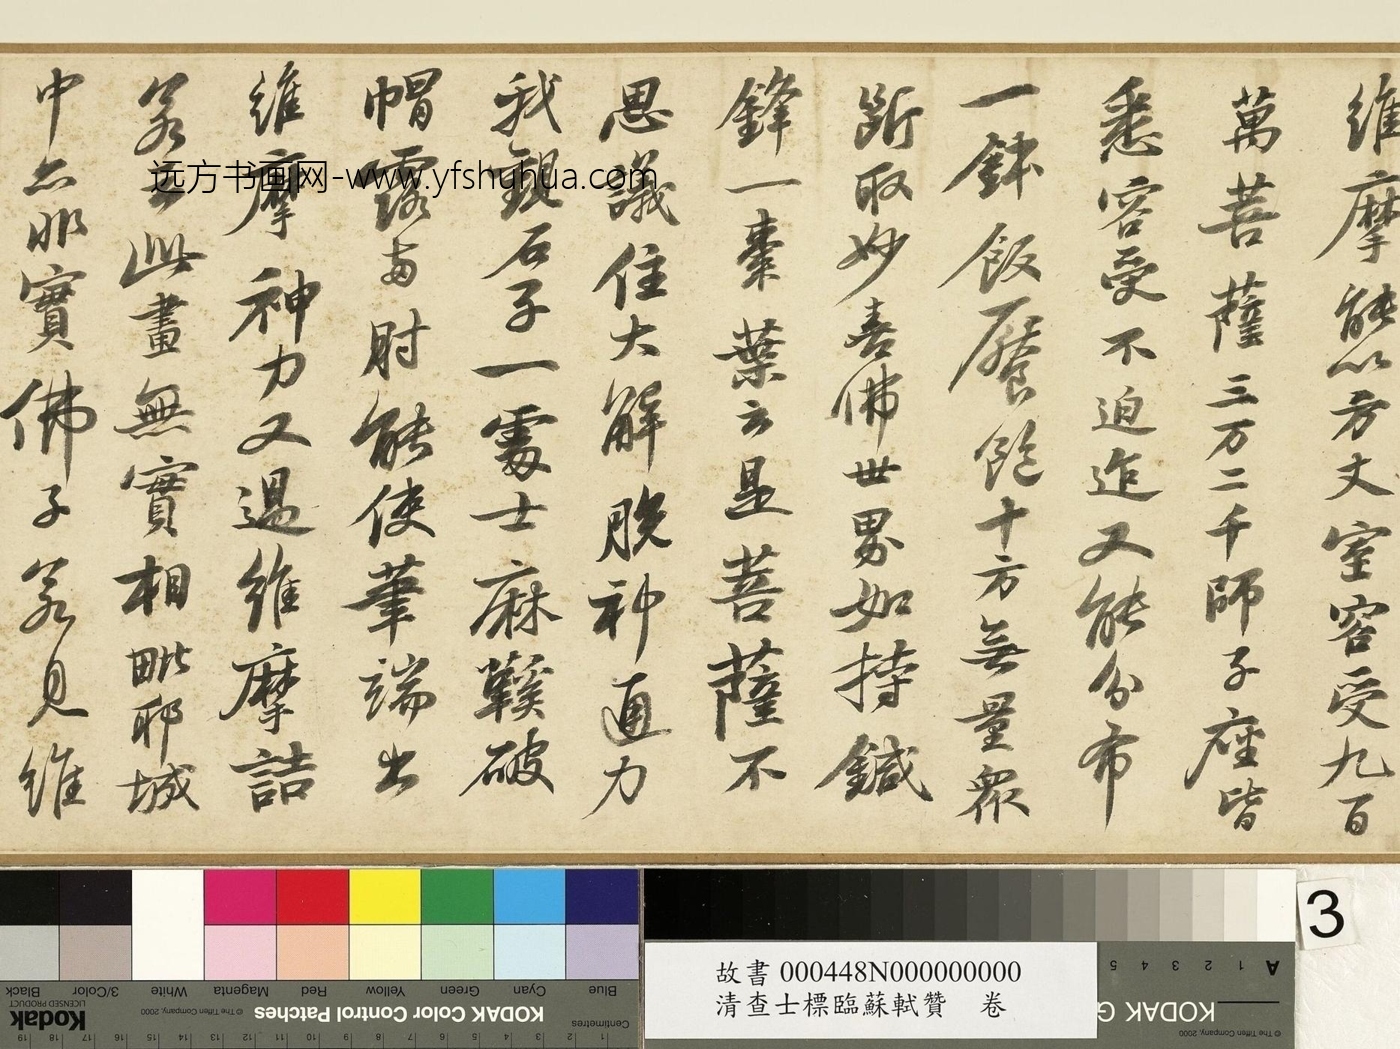 維摩能以方丈室容受九百
萬菩薩三万二千師子座皆
悉容受不迫迮又能分布
一鉢飯饜飽十方無量眾
斷取妙喜佛世界如持鍼
鋒一棗葉云是菩薩不
思議住大解脫神通力
我觀石子一處士麻鞵破
帽露兩肘能使筆端出
維摩神力又過維摩詰
若云此畫無實相毗耶城
中亦非實佛子若見維
远方书画网-www.yfshuhua.com
3
故書 000448N000000000
清查士標臨蘇軾贊 卷
Blue Cyan Green Yellow Red Magenta White 3/Color Black
KODAK Color Control Patches
© The Tiffen Company, 2000
Kodak
LICENSED PRODUCT
Centimetres
1 2 3 4 5 6 7 8 9 10 11 12 13 14 15 16 17 18 19
A 1 2 3 4 5
KODAK G
© The Tiffen Company, 2000